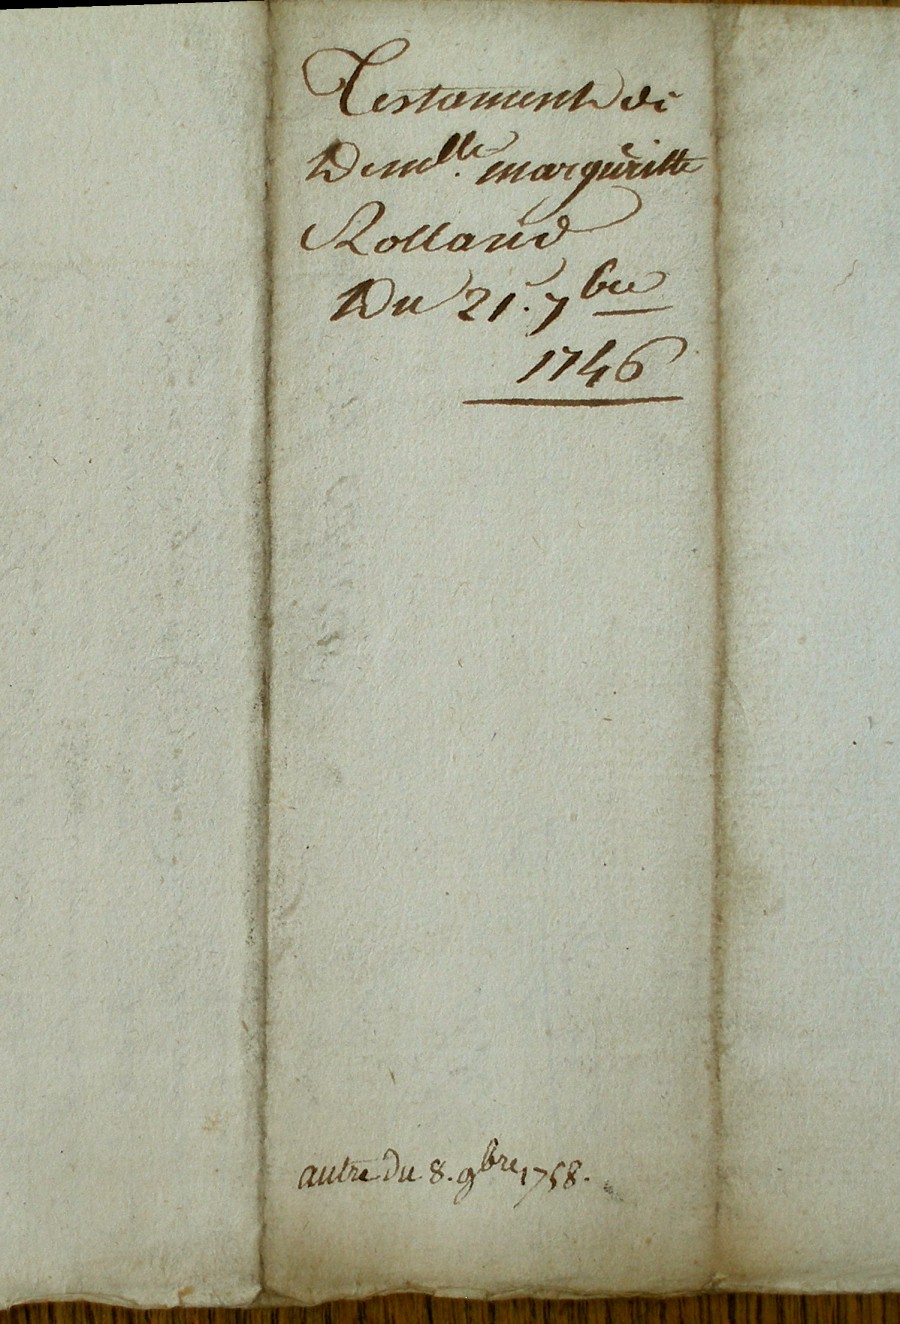 Testament de
Demlle. margueritte
Rolland
Du 21. 7bre
1746
autre du 8. 9bre 1758.